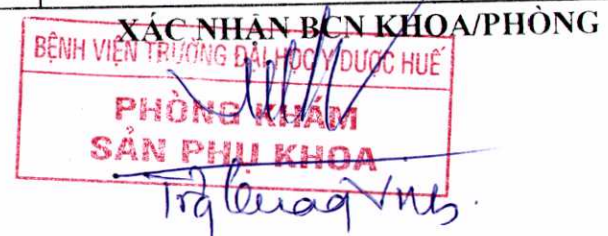 XÁC NHẬN BCN KHOA/PHÒNG
BỆNH VIỆN TRƯỜNG ĐẠI HỌC Y DƯỢC HUẾ
PHÒNG KHÁM
SẢN PHỤ KHOA
Quang